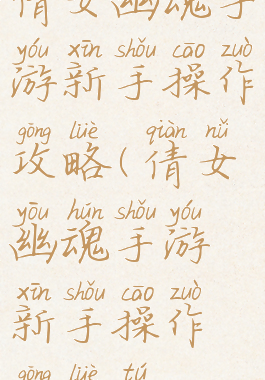 倩女幽魂手
yóu xīn shǒu cāo zuò
游新手操作
gōng lüè qiàn nǚ
攻略(倩女
yōu hún shǒu yóu
幽魂手游
xīn shǒu cāo zuò
新手操作
gōng lüè tú